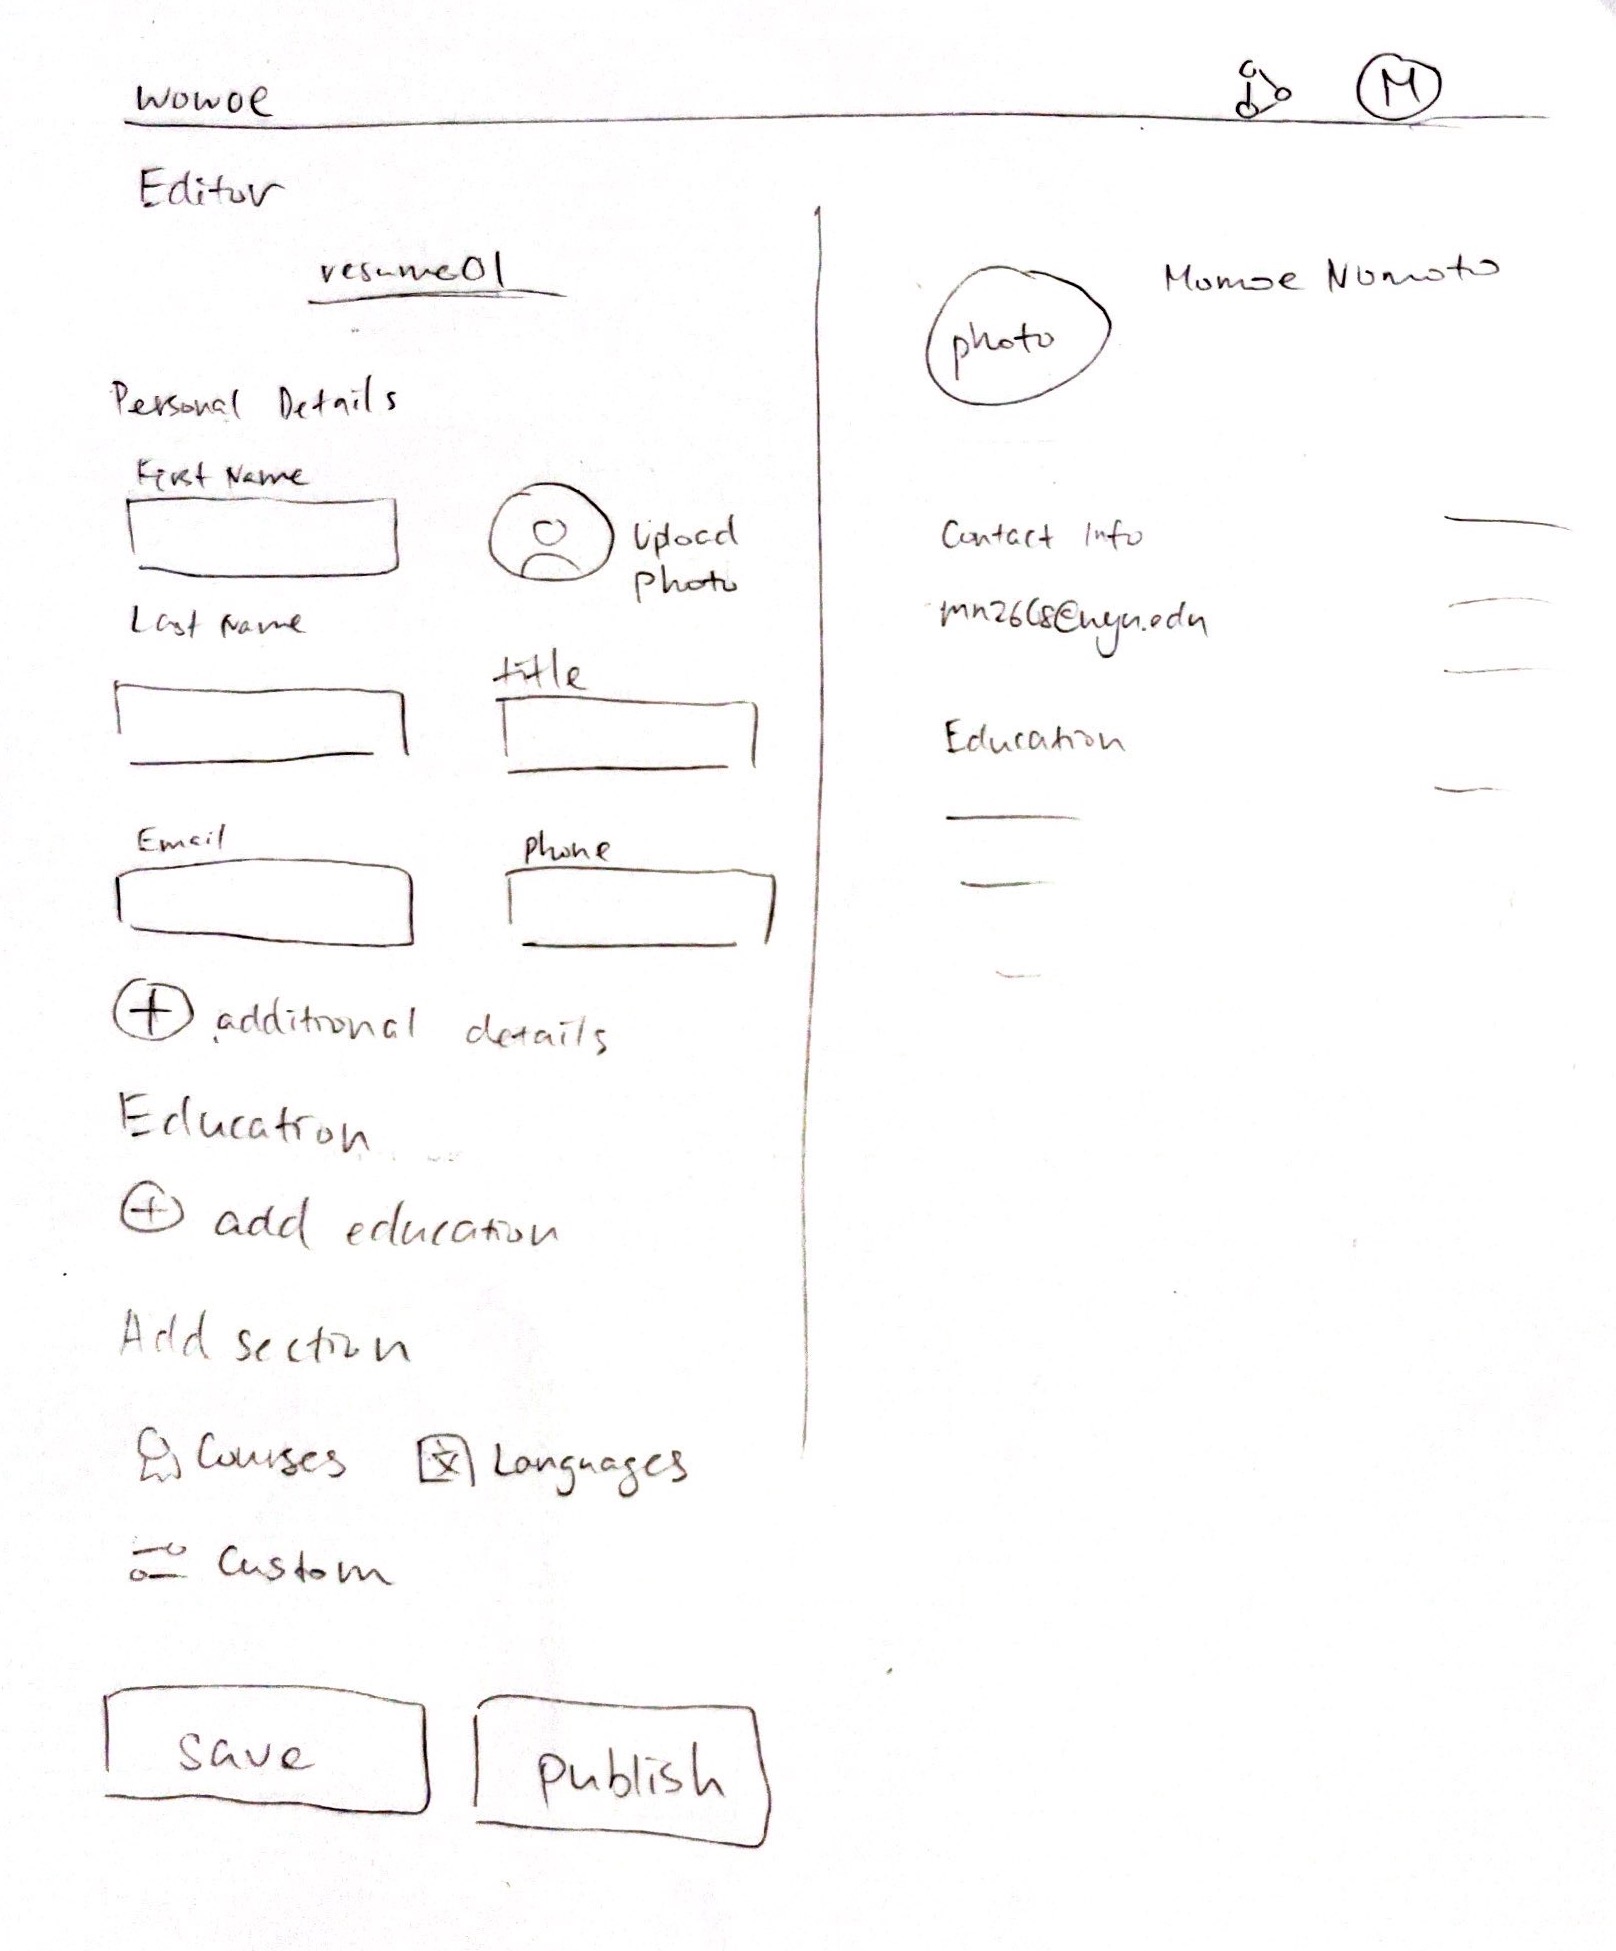 wowoe
M
Editor
resume01
Personal Details
First Name
Upload
photo
Last Name
title
Email
phone
+ additional details
Education
+ add education
Add section
Courses
文 Languages
Custom
save
publish
photo
Momoe Nomoto
Contact Info
Education